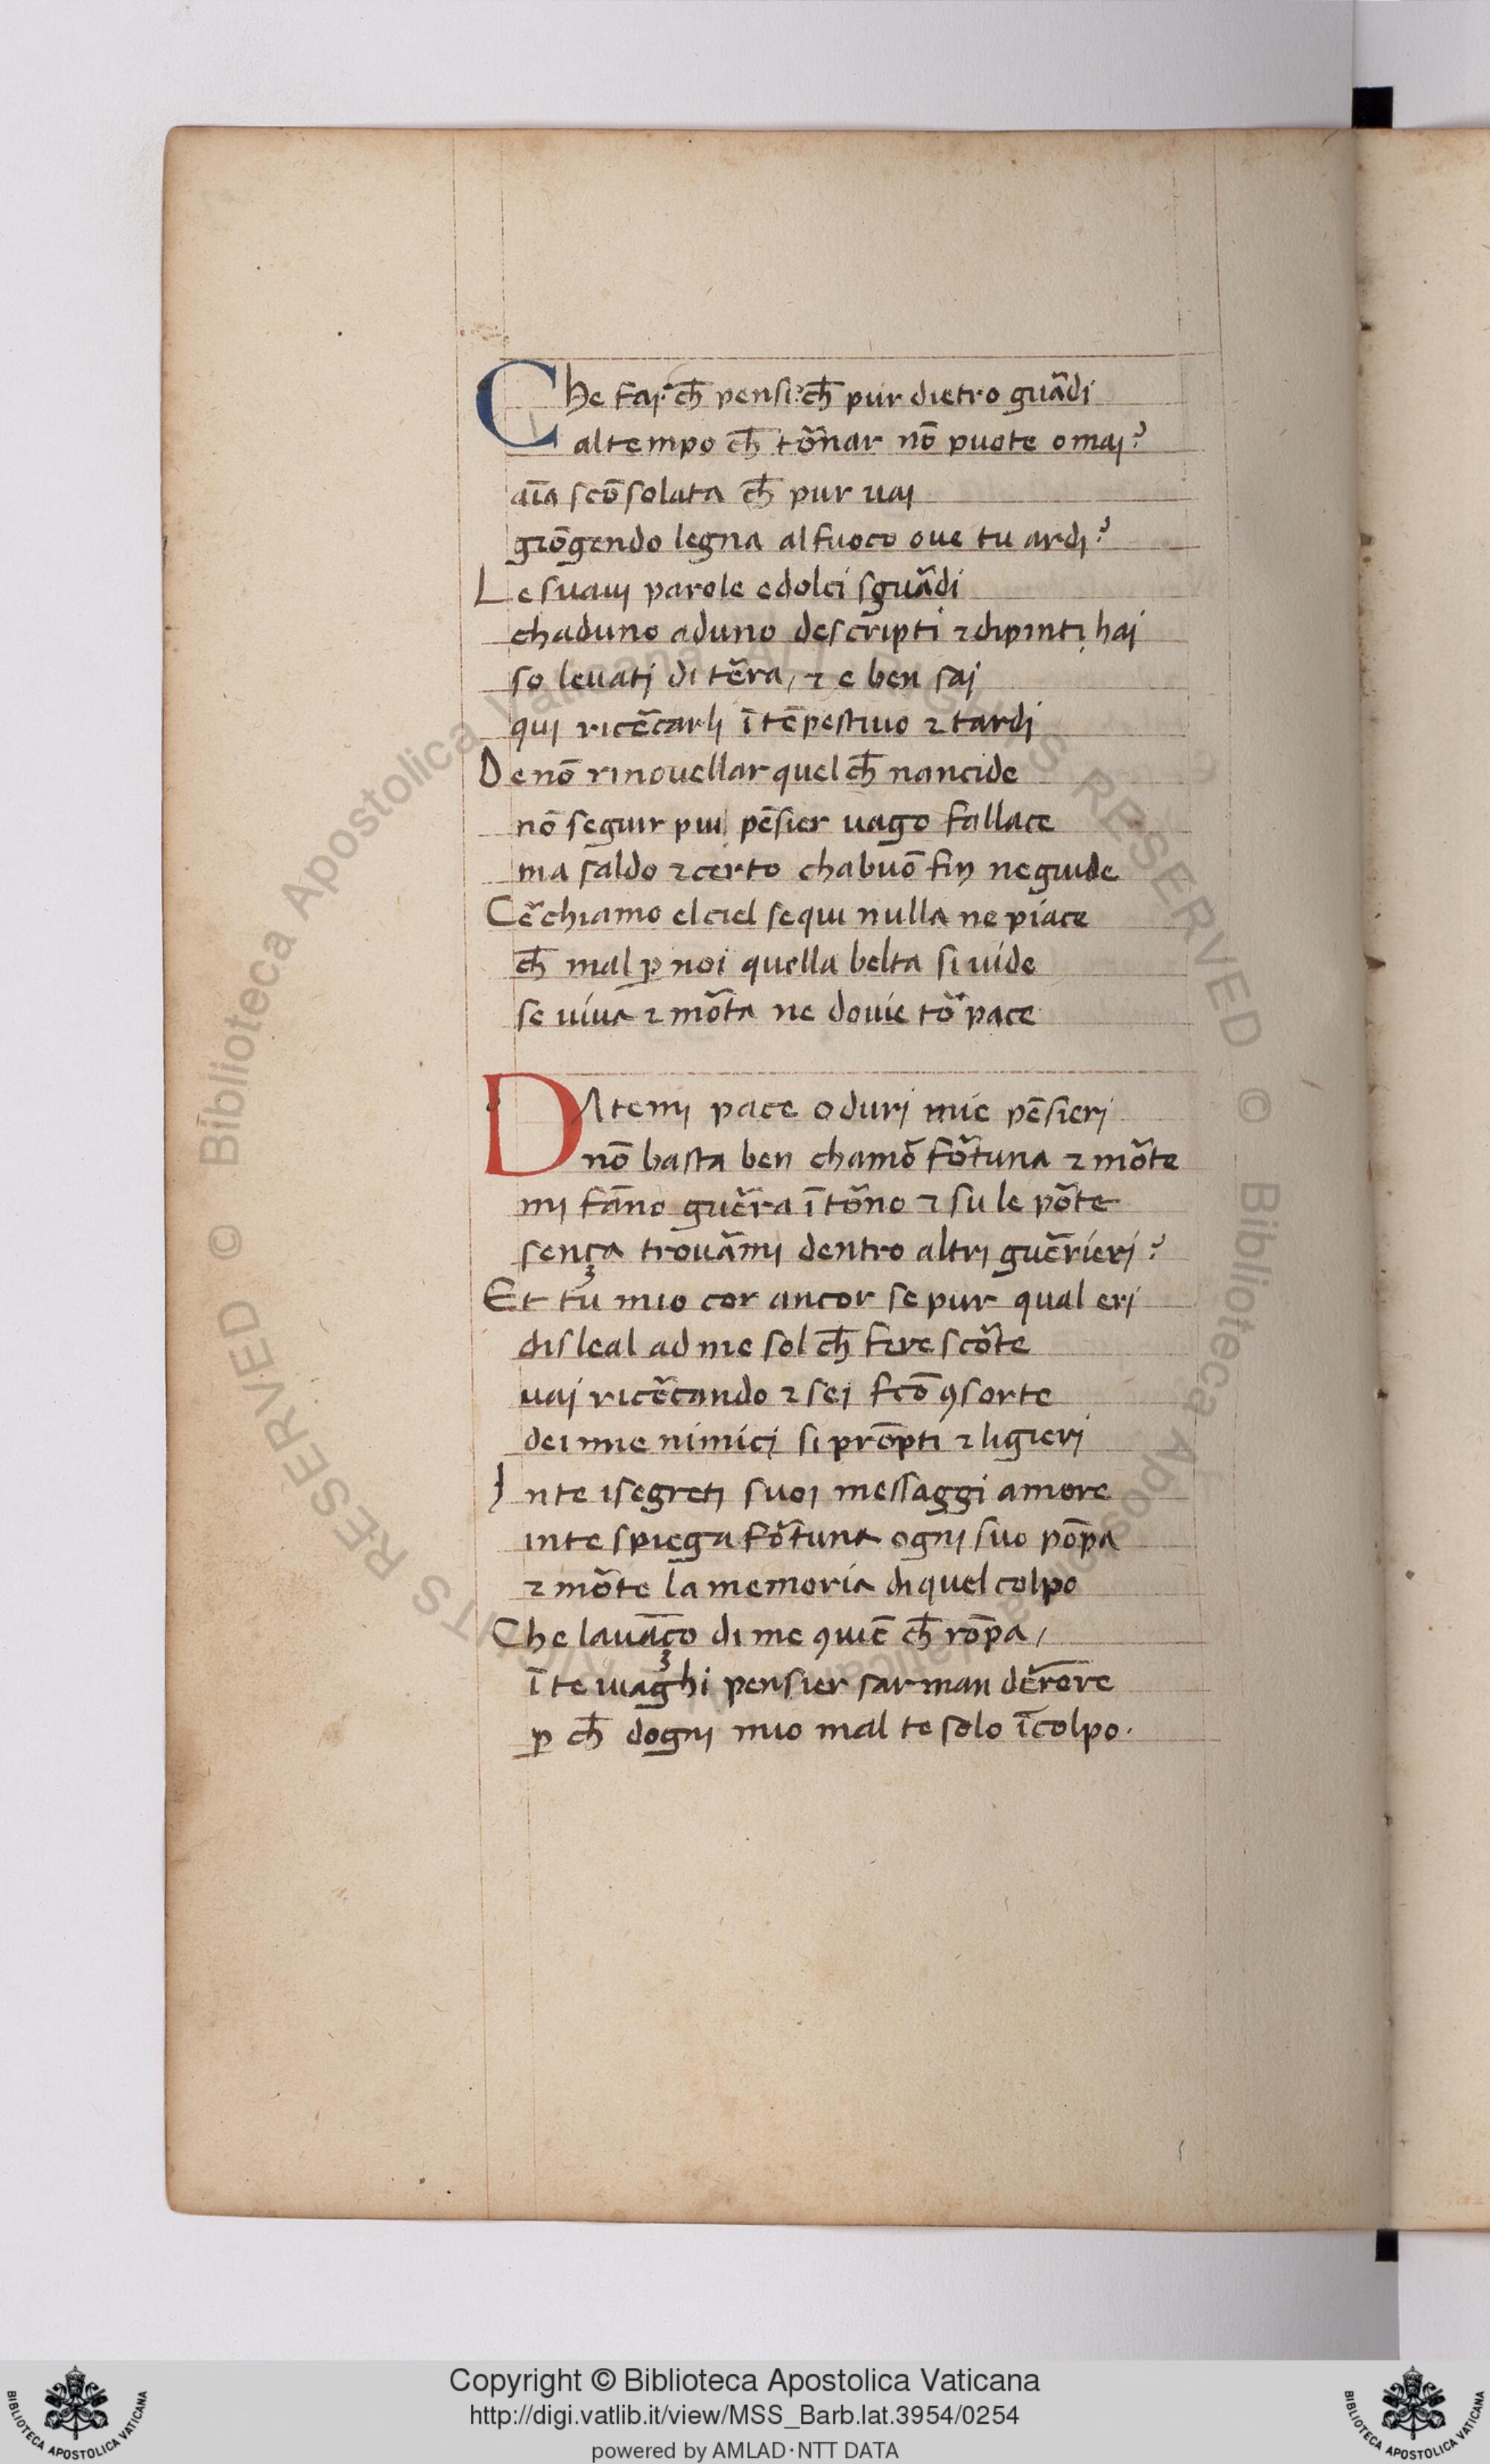 Che faj? ch̄ pensi? ch̄ pur dietro guãdi
al tempo ch̄ tõnar nō puote omaj?
aīa scōsolata ch̄ pur uaj
giōgendo legna al fuoco oue tu ardj?
Le suauj parole e dolci sguãdi
chaduno aduno descripti ⁊ dipinti haj
so leuatj di tẽra, ⁊ e ben saj
quj ricẽcarlj ī tēpestiuo ⁊ tardj
De nō rinouellar quel ch̄ nancide
nō seguir piu pēsier uago fallace
ma saldo ⁊ certo chabuō fin ne guide
Cẽchiamo el ciel se qui nulla ne piace
ch̄ mal ꝑ noi quella belta si uide
se uiua ⁊ mõta ne douie tõ pace
DAtemj pace o durj mie pēsierj
nō basta ben chamō fõtuna ⁊ mõte
mj fāno guẽra ī tõno ⁊ su le põte
sença trouãmj dentro altrj guẽrierj?
Et tu mio cor ancor se pur qual erj
disleal ad me sol ch̄ fere scõte
uaj ricẽcando ⁊ sej fcō ꝯsorte
dei mie nimicj si prōpti ⁊ ligierj
Jn te i segretj suoj messaggi amore
in te spiega fõtuna ognj suo pōpa
⁊ mõte la memoria di quel colpo
Che lauāço di me ꝯuiē ch̄ rōpa,
ī te iuaghi pensier sarman dẽrore
ꝑ ch̄ dognj mio mal te solo īcolpo.
© Biblioteca Apostolica Vaticana ALL RIGHTS RESERVED
© Biblioteca Apostolica Vaticana ALL RIGHTS RESERVED
Copyright © Biblioteca Apostolica Vaticana
http://digi.vatlib.it/view/MSS_Barb.lat.3954/0254
powered by AMLAD·NTT DATA
BIBLIOTECA APOSTOLICA VATICANA
BIBLIOTECA APOSTOLICA VATICANA